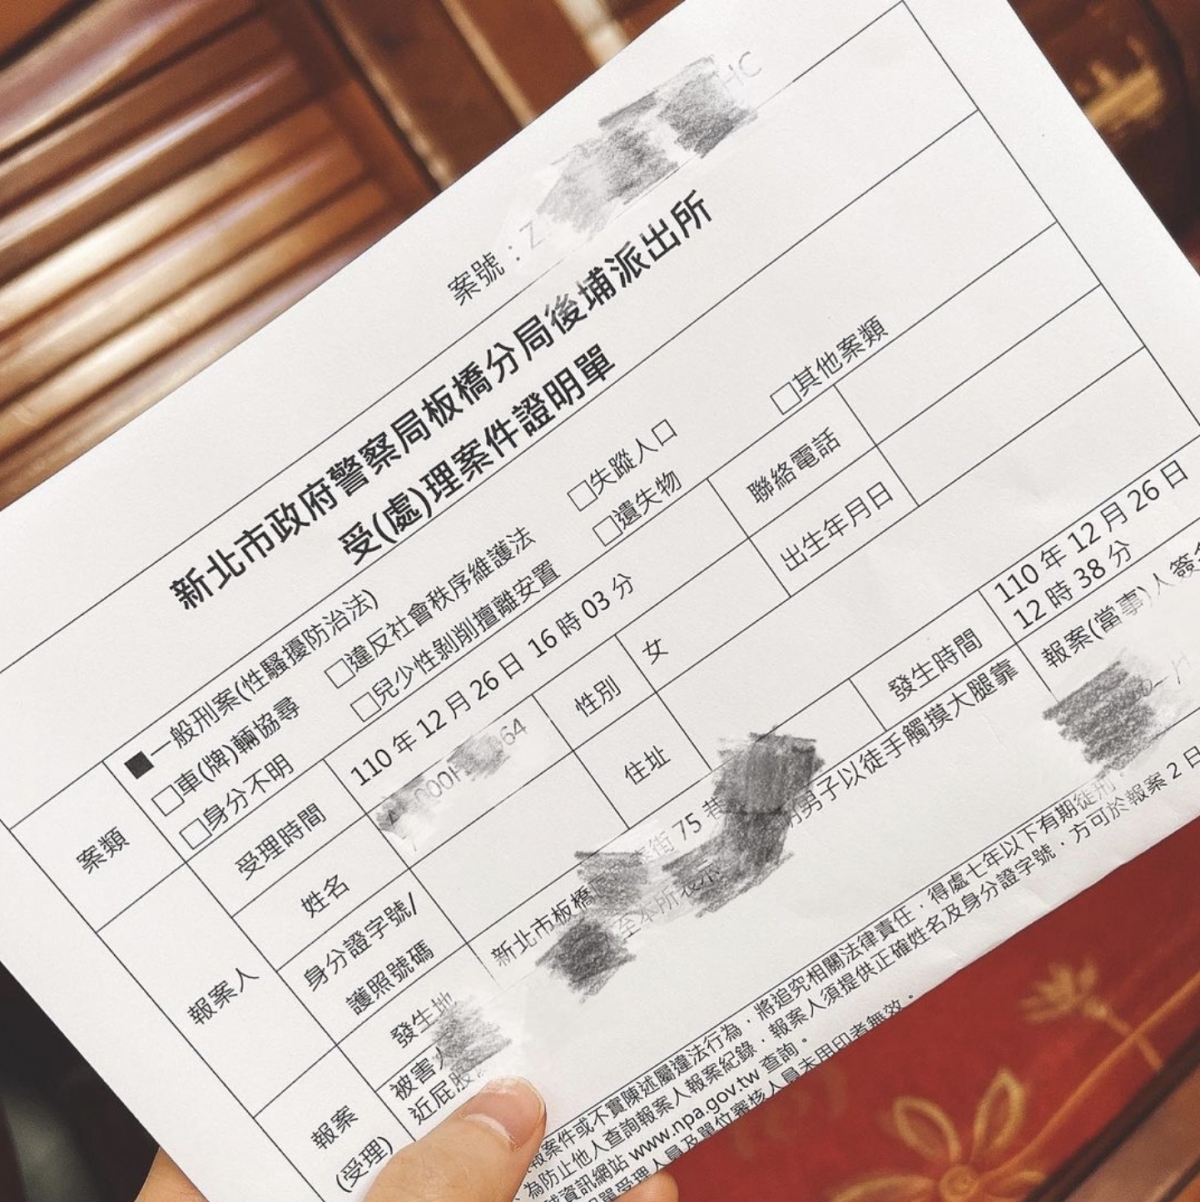 案號：Z HC
新北市政府警察局板橋分局後埔派出所
受(處)理案件證明單
案類
■一般刑案(性騷擾防治法)
□車(牌)輛協尋 □違反社會秩序維護法 □失蹤人口 □其他案類
□身分不明 □兒少性剝削擅離安置 □遺失物
報案人
受理時間 110 年 12 月 26 日 16 時 03 分
姓名 性別 女 聯絡電話
身分證字號/
護照號碼 住址 出生年月日
發生地 新北市板橋 街 75 巷 發生時間 110 年 12 月 26 日
12 時 38 分
報案
(受理)
被害 男子以徒手觸摸大腿靠
近屁股 至本所 報案(當事)人簽
報案件或不實陳述屬違法行為，將追究相關法律責任，得處七年以下有期徒刑
為防止他人查詢報案人報案紀錄，報案人須提供正確姓名及身分證字號，方可於報案 2 日
資訊網站 www.npa.gov.tw 查詢。
單受理人員及單位審核人員未用印者無效。